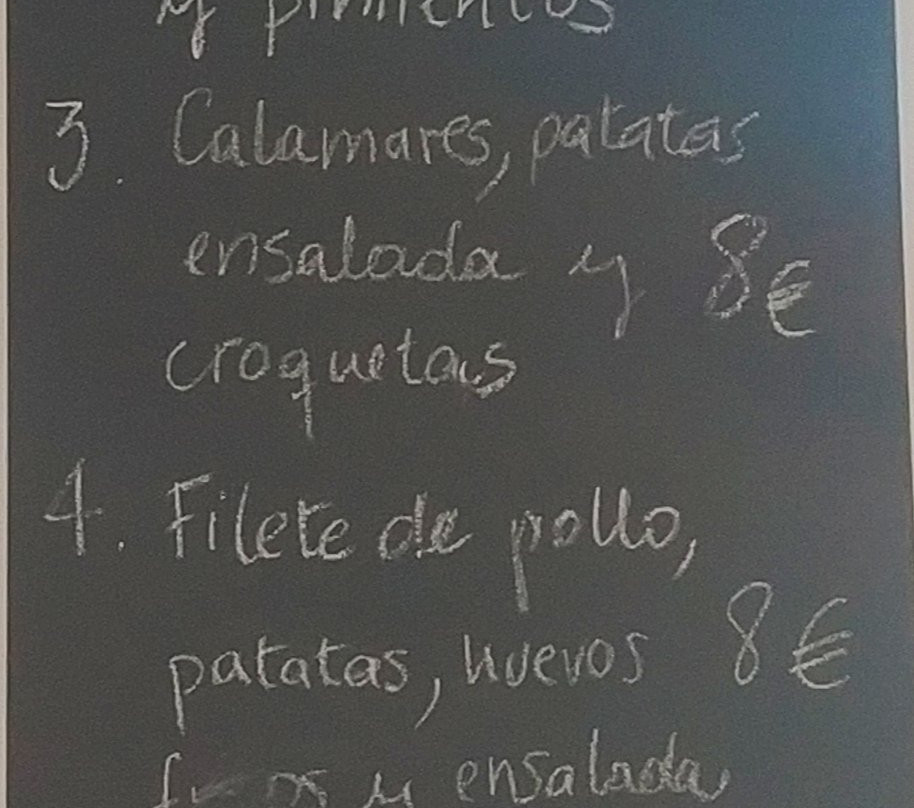 y pimientos
3. Calamares, patatas
ensalada y 8€
croquetas
4. Filete de pollo,
patatas, huevos 8€
y ensalada